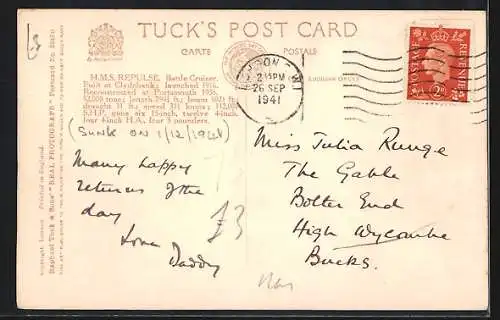 TUCK'S POST CARD
CARTE POSTALE
H.M.S. REPULSE. Battle Cruiser.
Built at Clydebank; launched 1916.
Reconstructed at Portsmouth 1936.
32,000 tons; length 794½ ft.; beam
draught ft.; speed knots; 112,000
S.H.P. guns six 15-inch, twelve 4-inch,
four 4-inch H.A., four 3 pounders.
(SUNK ON 1/12/1941)
Many happy
returns of the
day
Love
Daddy
£3
£3
LONDON W.1
2 PM
26 SEP
1941
POSTAGE REVENUE
2D
Miss Julia Runge
The Gable
Bolter End
High Wycombe
Bucks.
Copyright. London Printed in England.
Raphael Tuck & Sons' "REAL PHOTOGRAPH" Postcard No.